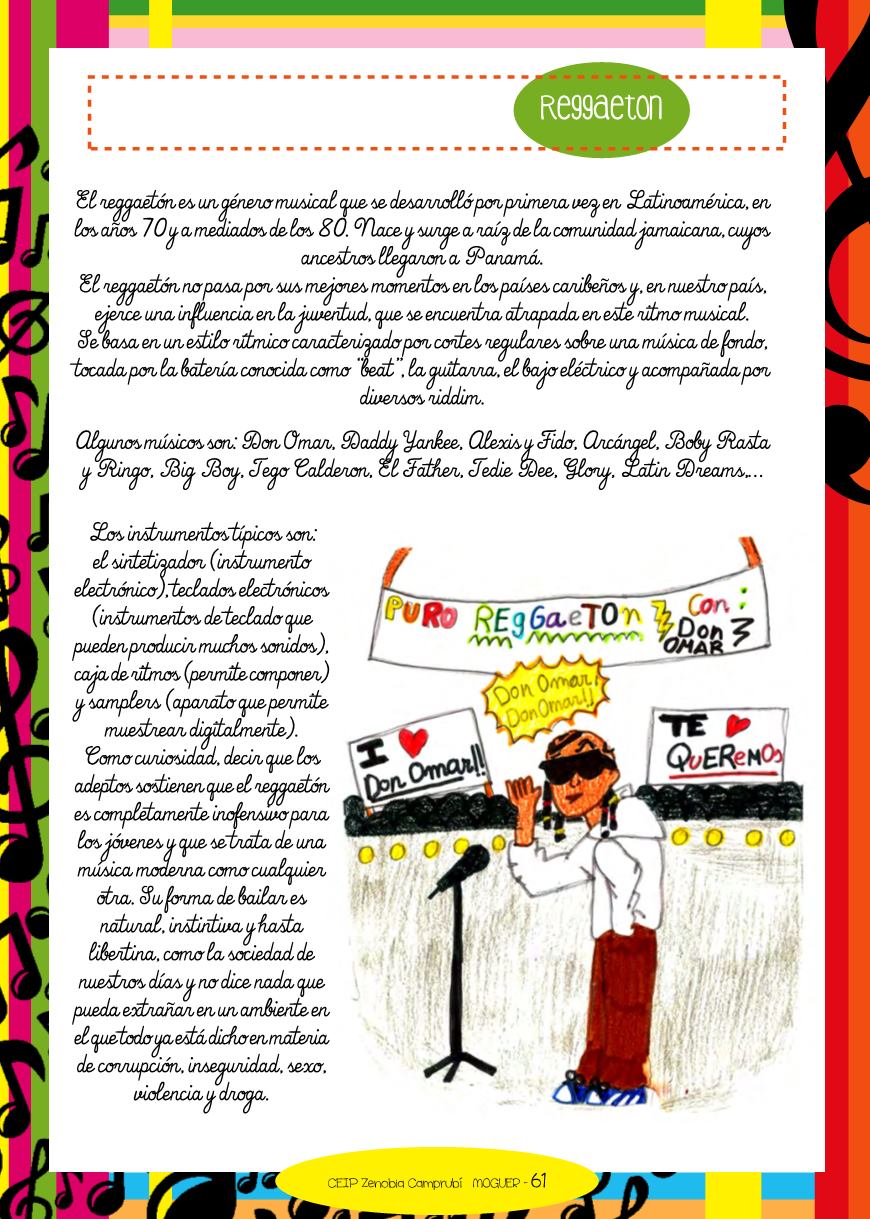 Reggaeton
El reggaetón es un género musical que se desarrolló por primera vez en Latinoamérica, en
los años 70 y a mediados de los 80. Nace y surge a raíz de la comunidad jamaicana, cuyos
ancestros llegaron a Panamá.
El reggaetón no pasa por sus mejores momentos en los países caribeños y, en nuestro país,
ejerce una influencia en la juventud, que se encuentra atrapada en este ritmo musical.
Se basa en un estilo rítmico caracterizado por cortes regulares sobre una música de fondo,
tocada por la batería conocida como "beat", la guitarra, el bajo eléctrico y acompañada por
diversos riddim.
Algunos músicos son: Don Omar, Daddy Yankee, Alexis y Fido, Arcángel, Boby Rasta
y Ringo, Big Boy, Tego Calderon, El Father, Tedie Dee, Glory, Latin Dreams,...
Los instrumentos típicos son:
el sintetizador (instrumento
electrónico), teclados electrónicos
(instrumentos de teclado que
pueden producir muchos sonidos),
caja de ritmos (permite componer)
y samplers (aparato que permite
muestrear digitalmente).
Como curiosidad, decir que los
adeptos sostienen que el reggaetón
es completamente inofensivo para
los jóvenes y que se trata de una
música moderna como cualquier
otra. Su forma de bailar es
natural, instintiva y hasta
libertina, como la sociedad de
nuestros días y no dice nada que
pueda extrañar en un ambiente en
el que todo ya está dicho en materia
de corrupción, inseguridad, sexo,
violencia y droga.
PURO REgGaeTOn Con:
Don
OMAR
Don Omar!
Don Omar!!
I ❤
Don Omar!!
TE ❤
QuEREmOs
CEIP Zenobia Camprubí MOGUER - 61